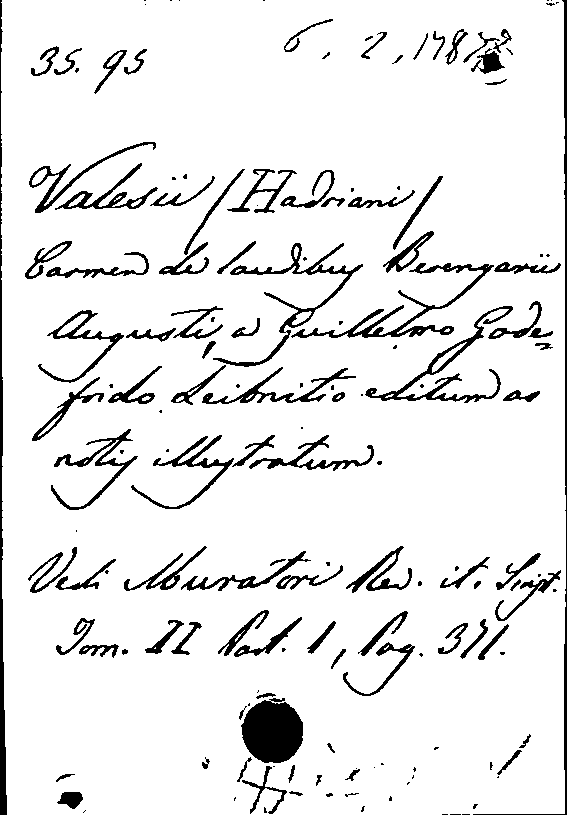 35. 95
6. 2, 178
Valesii /Hadriani/
Carmen de laudibus Berengarii
Augusti, a Guillelmo Gode=
frido Leibnitio editum ac
notis illustratum.
Vedi Muratori Rer. it. Script.
Tom. II Part. 1, Pag. 371.